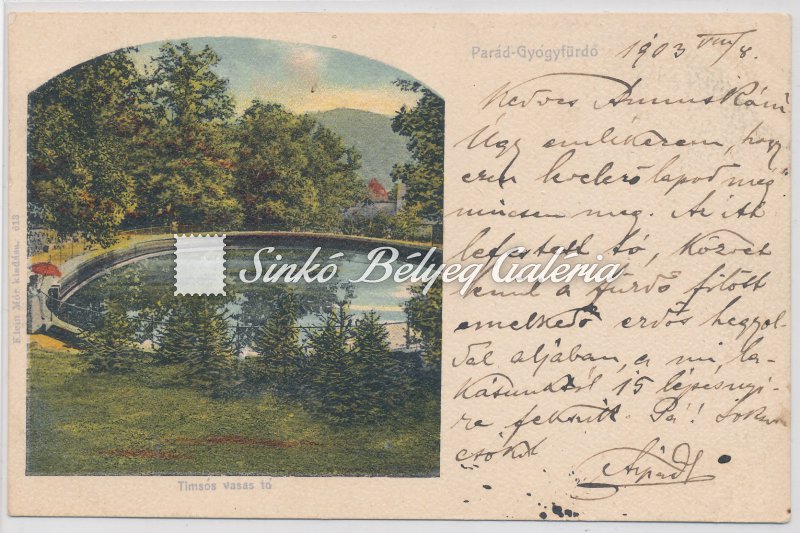 Parád-Gyógyfürdő
1903 VIII/8.
Kedves Annuskám
Úgy emlékszem, hogy
ezen levelező lapod még
nincsen meg. Az itt
lefestett tó, közvet
lenül a fürdő fölött
emelkedő erdős hegyol-
dal aljában, a mi la-
kásunktól 15 lépésnyi-
re fekszik. Pá! Sokszor
csókol
Árpád
Timsós vasas tó
Klein Mór kiadása. 613
Sinkó Bélyeg Galéria